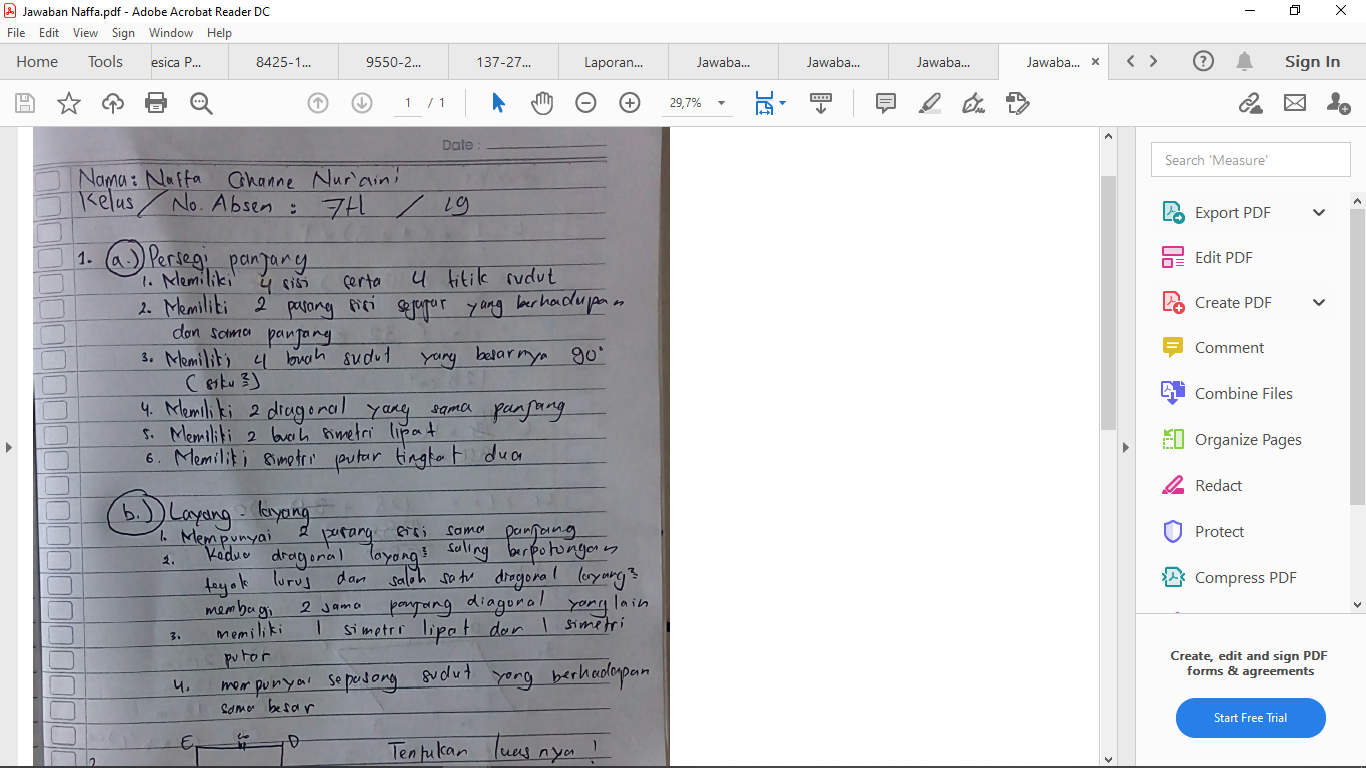 Jawaban Naffa.pdf - Adobe Acrobat Reader DC
File Edit View Sign Window Help
Home Tools esica P... 8425-1... 9550-2... 137-27... Laporan... Jawaba... Jawaba... Jawaba... Jawaba... Sign In
1 / 1 29,7%
Date :
Nama : Naffa Nur'aini
Kelas / No. Absen : 7H / 19
1. a.) Persegi panjang
1. Memiliki 4 sisi serta 4 titik sudut
2. Memiliki 2 pasang sisi sejajar yang berhadapan
dan sama panjang
3. Memiliki 4 buah sudut yang besarnya 90°
( siku ²)
4. Memiliki 2 diagonal yang sama panjang
5. Memiliki 2 buah simetri lipat
6. Memiliki simetri putar tingkat dua
b.) Layang - layang
1. Mempunyai 2 pasang sisi sama panjang
2. Kedua diagonal layang² saling berpotongan
tegak lurus dan salah satu diagonal layang²
membagi 2 sama panjang diagonal yang lain
3. memiliki 1 simetri lipat dan 1 simetri
putar
4. mempunyai sepasang sudut yang berhadapan
sama besar
E D Tentukan luasnya !
2.
Search 'Measure'
Export PDF
Edit PDF
Create PDF
Comment
Combine Files
Organize Pages
Redact
Protect
Compress PDF
Create, edit and sign PDF
forms & agreements
Start Free Trial